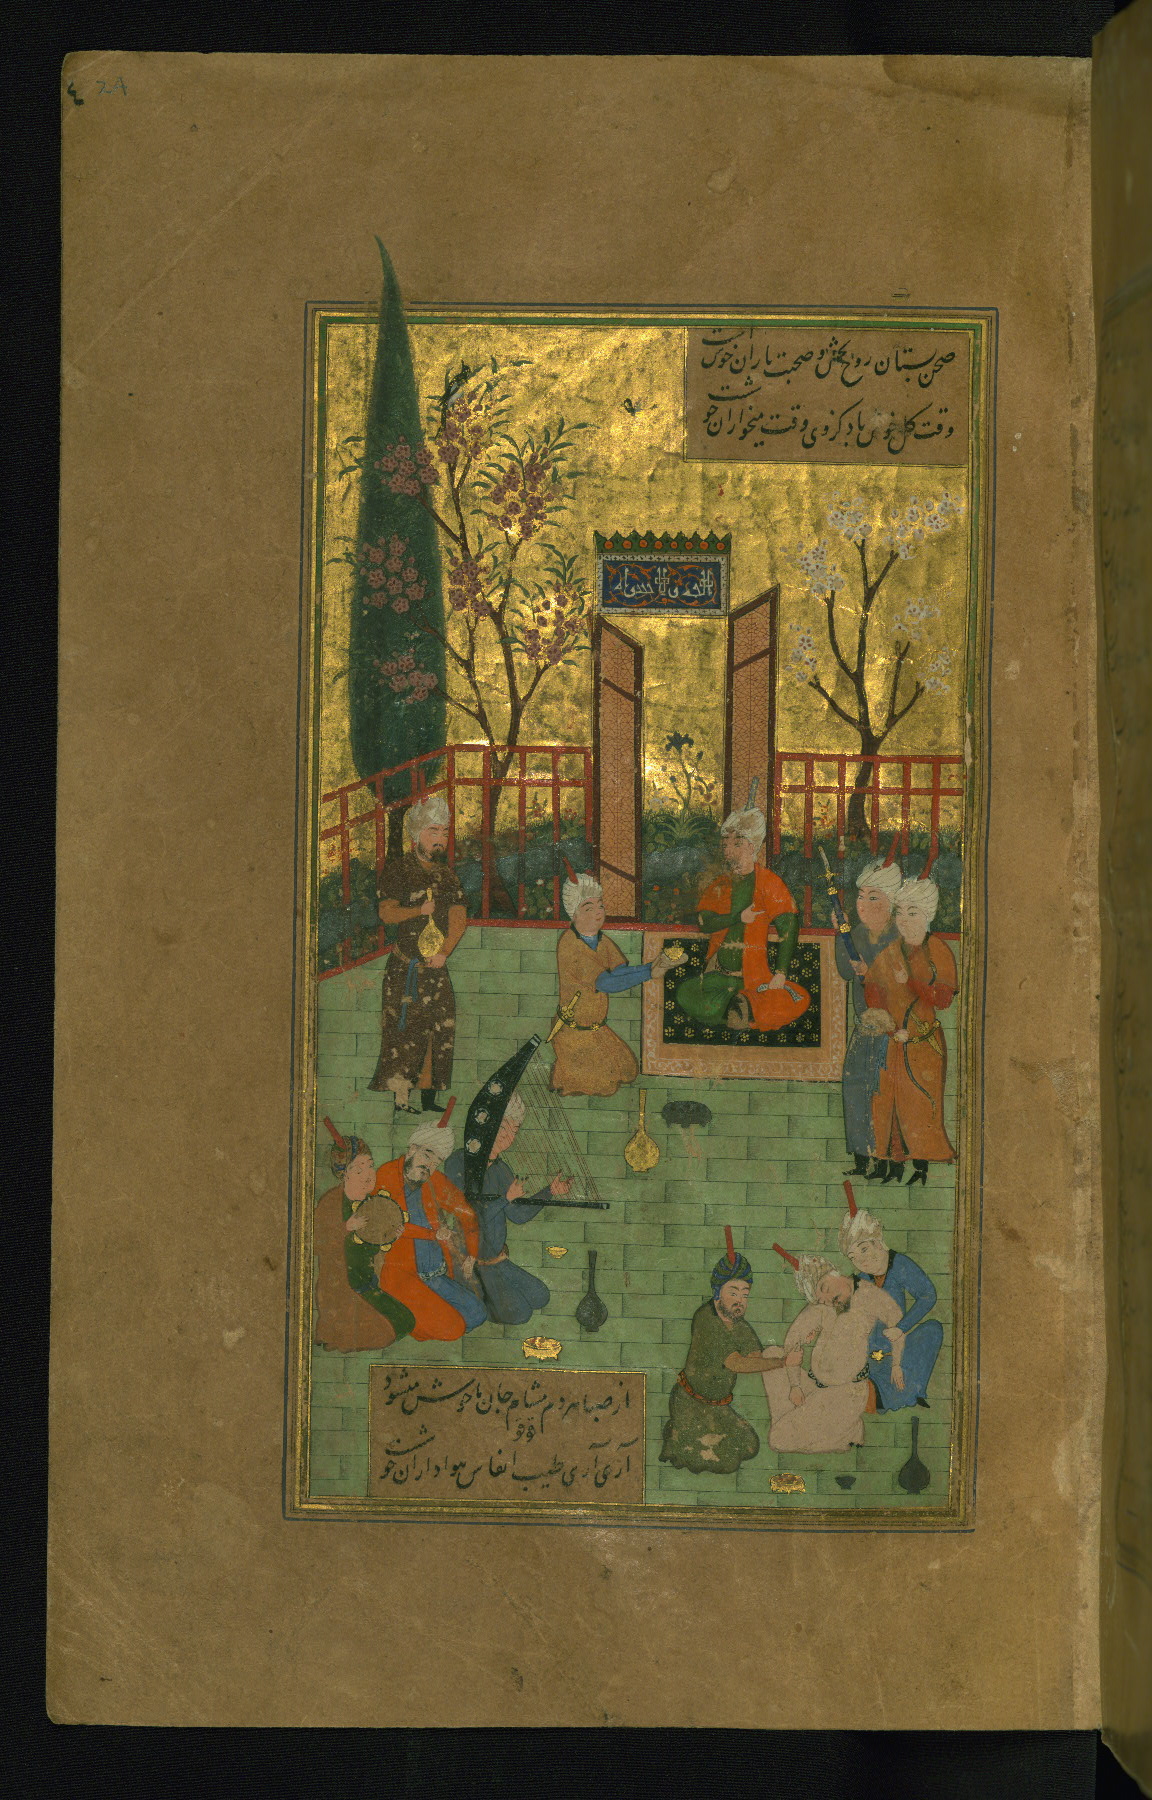 ٤ 24
صحن بستان روح بخش و صحبت یاران خوشت
وقت گل خوش باد کز وی وقت میخواران خوشت
از صبا هردم مشام جان ما خوش میشود
آری آری طیب انفاس هواداران خوشت